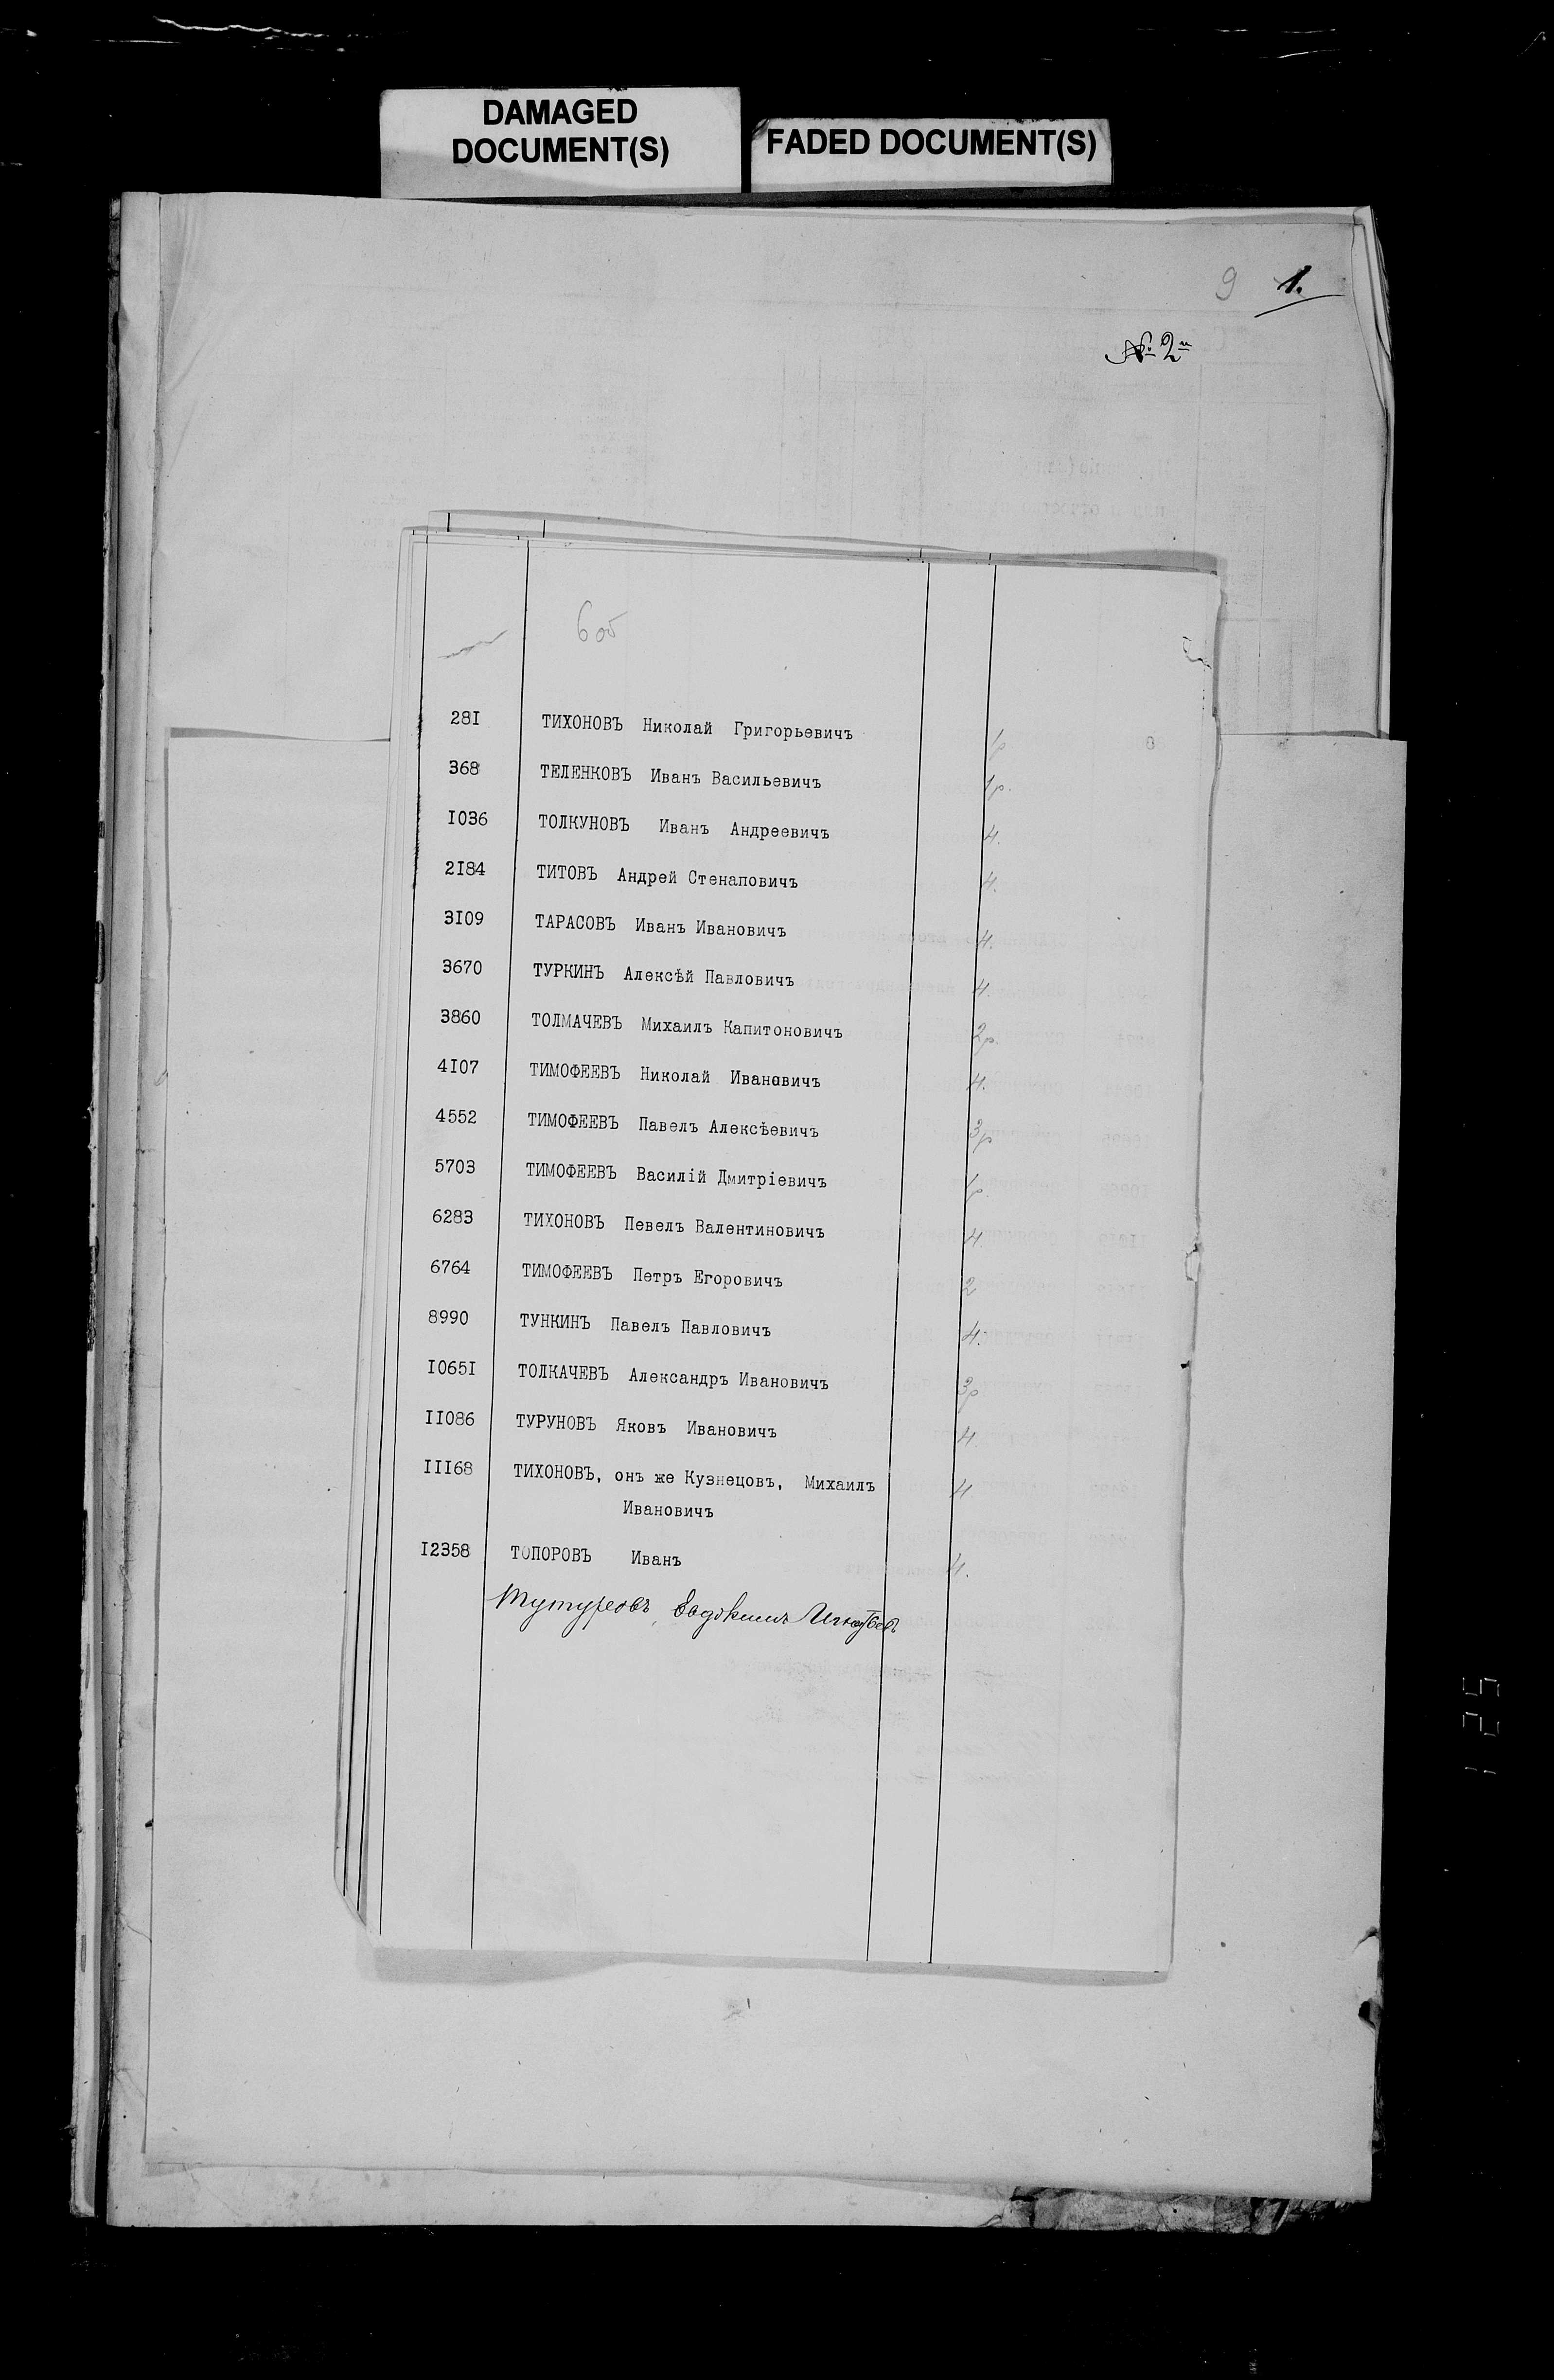 DAMAGED
DOCUMENT(S)
FADED DOCUMENT(S)
9 1.
№ 2й
6об
281 ТИХОНОВЪ Николай Григорьевичъ 1р
368 ТЕЛЕНКОВЪ Иванъ Васильевичъ 1р.
1036 ТОЛКУНОВЪ Иванъ Андреевичъ 4.
2184 ТИТОВЪ Андрей Стенаповичъ 4.
3109 ТАРАСОВЪ Иванъ Ивановичъ 4.
3670 ТУРКИНЪ Алексѣй Павловичъ 4.
3860 ТОЛМАЧЕВЪ Михаилъ Капитоновичъ 2р.
4107 ТИМОФЕЕВЪ Николай Ивановичъ 4.
4552 ТИМОФЕЕВЪ Павелъ Алексѣевичъ 3р
5703 ТИМОФЕЕВЪ Василій Дмитріевичъ 1р.
6283 ТИХОНОВЪ Певелъ Валентиновичъ 4.
6764 ТИМОФЕЕВЪ Петръ Егоровичъ 2
8990 ТУНКИНЪ Павелъ Павловичъ 4.
10651 ТОЛКАЧЕВЪ Александръ Ивановичъ 3р
11086 ТУРУНОВЪ Яковъ Ивановичъ 4.
11168 ТИХОНОВЪ, онъ же Кузнецовъ, Михаилъ 4.
Ивановичъ
12358 ТОПОРОВЪ Иванъ 4.
Евдокимъ
125